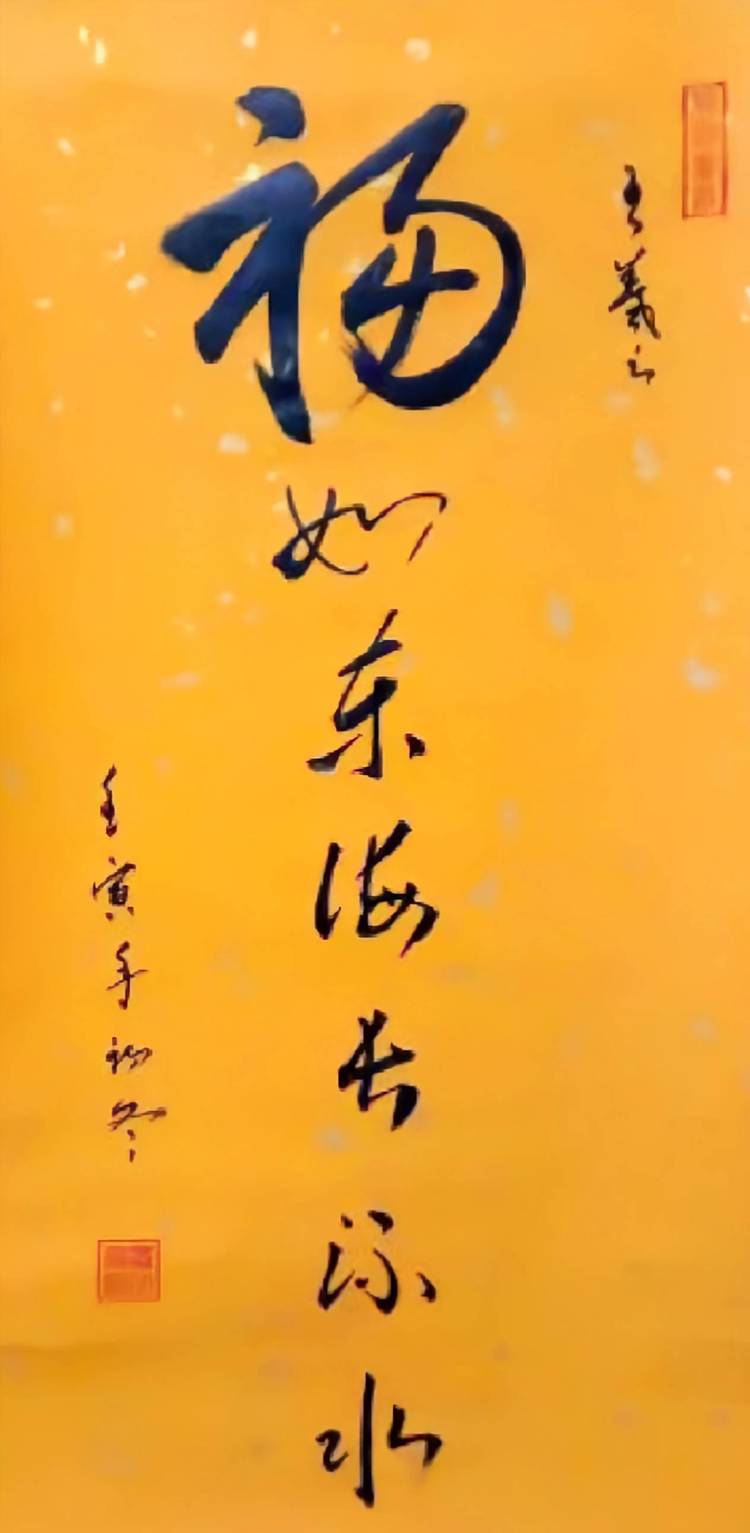 王羲之
福如东海长流水
壬寅年初冬